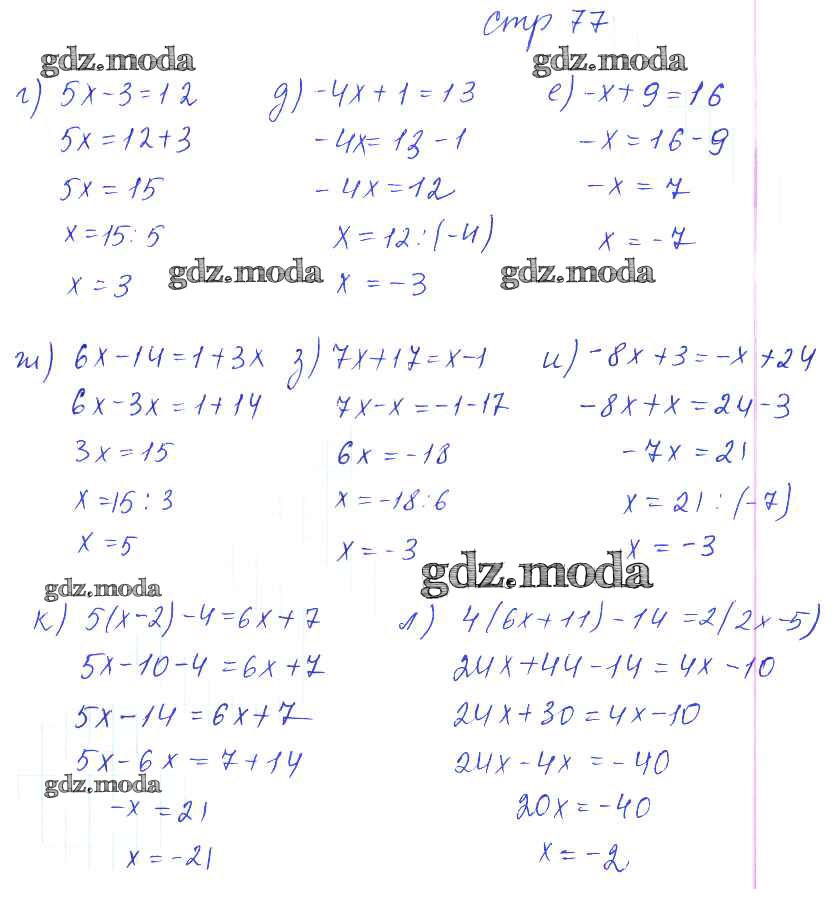 стр 77
gdz.moda gdz.moda
г) 5x-3=12 д) -4x+1=13 е) -x+9=16
5x=12+3 -4x=13-1 -x=16-9
5x=15 -4x=12 -x=7
x=15:5 x=12:(-4) x=-7
x=3 gdz.moda x=-3 gdz.moda
ж) 6x-14=1+3x з) 7x+17=x-1 и) -8x+3=-x+24
6x-3x=1+14 7x-x=-1-17 -8x+x=24-3
3x=15 6x=-18 -7x=21
x=15:3 x=-18:6 x=21:(-7)
x=5 x=-3 x=-3
gdz.moda gdz.moda
к) 5(x-2)-4=6x+7 л) 4(6x+11)-14=2(2x-5)
5x-10-4=6x+7 24x+44-14=4x-10
5x-14=6x+7 24x+30=4x-10
5x-6x=7+14 24x-4x=-40
gdz.moda
-x=21 20x=-40
x=-21 x=-2